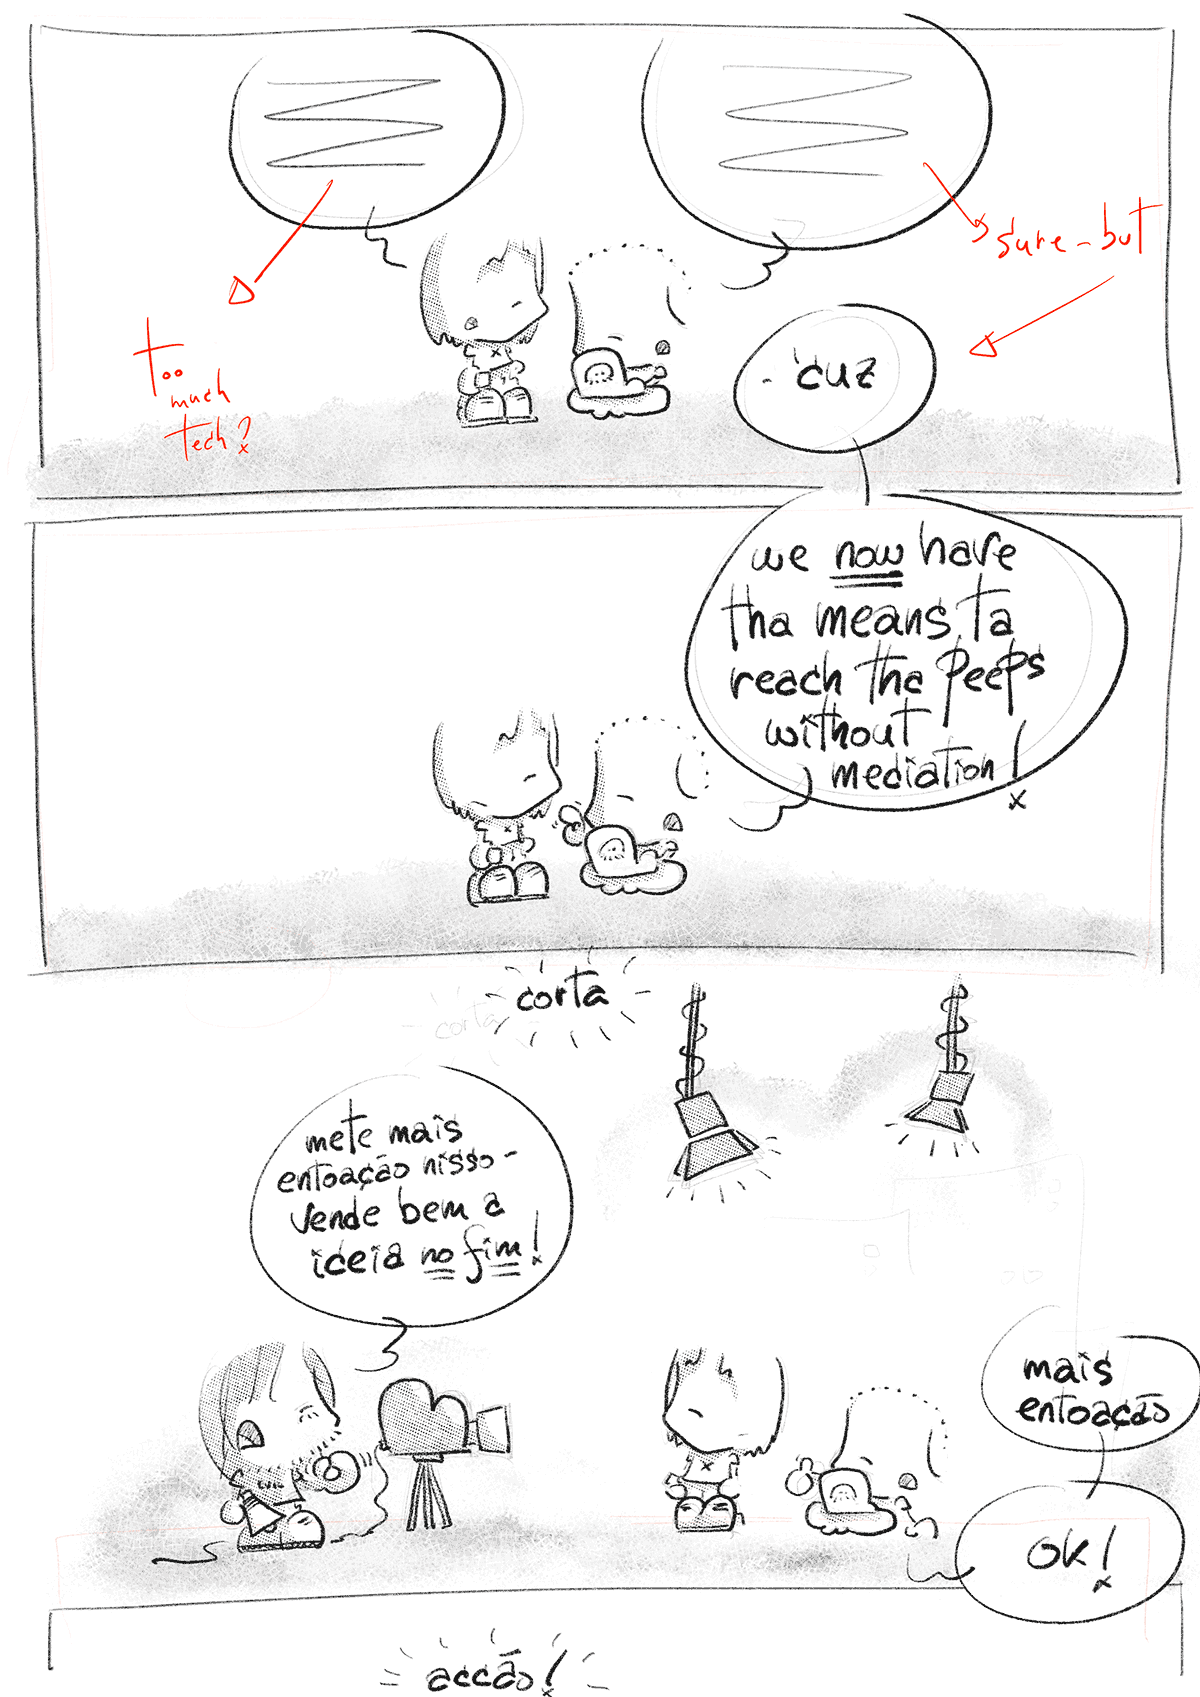 too
much
tech?
sure - but
- cuz
we now have
tha means ta
reach tha peeps
without
mediation!
corta
corta
mete mais
entoação nisso -
vende bem a
ideia no fim!
mais
entoação
ok!
acção!